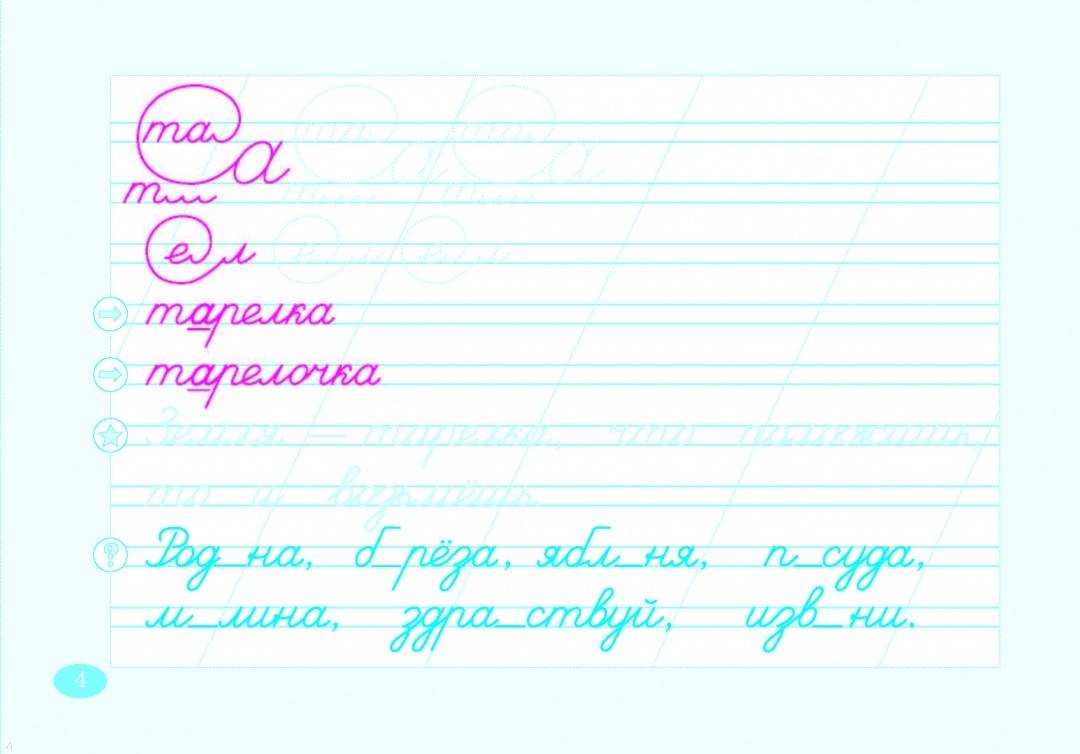 та та та
а а а
тм тм тм
ел ел ел
тарелка
тарелочка
Земля — тарелка, что положишь,
то и возьмёшь.
Род_на, б_рёза, ябл_ня, п_суда,
м_лина, здра_ствуй, изв_ни.
4